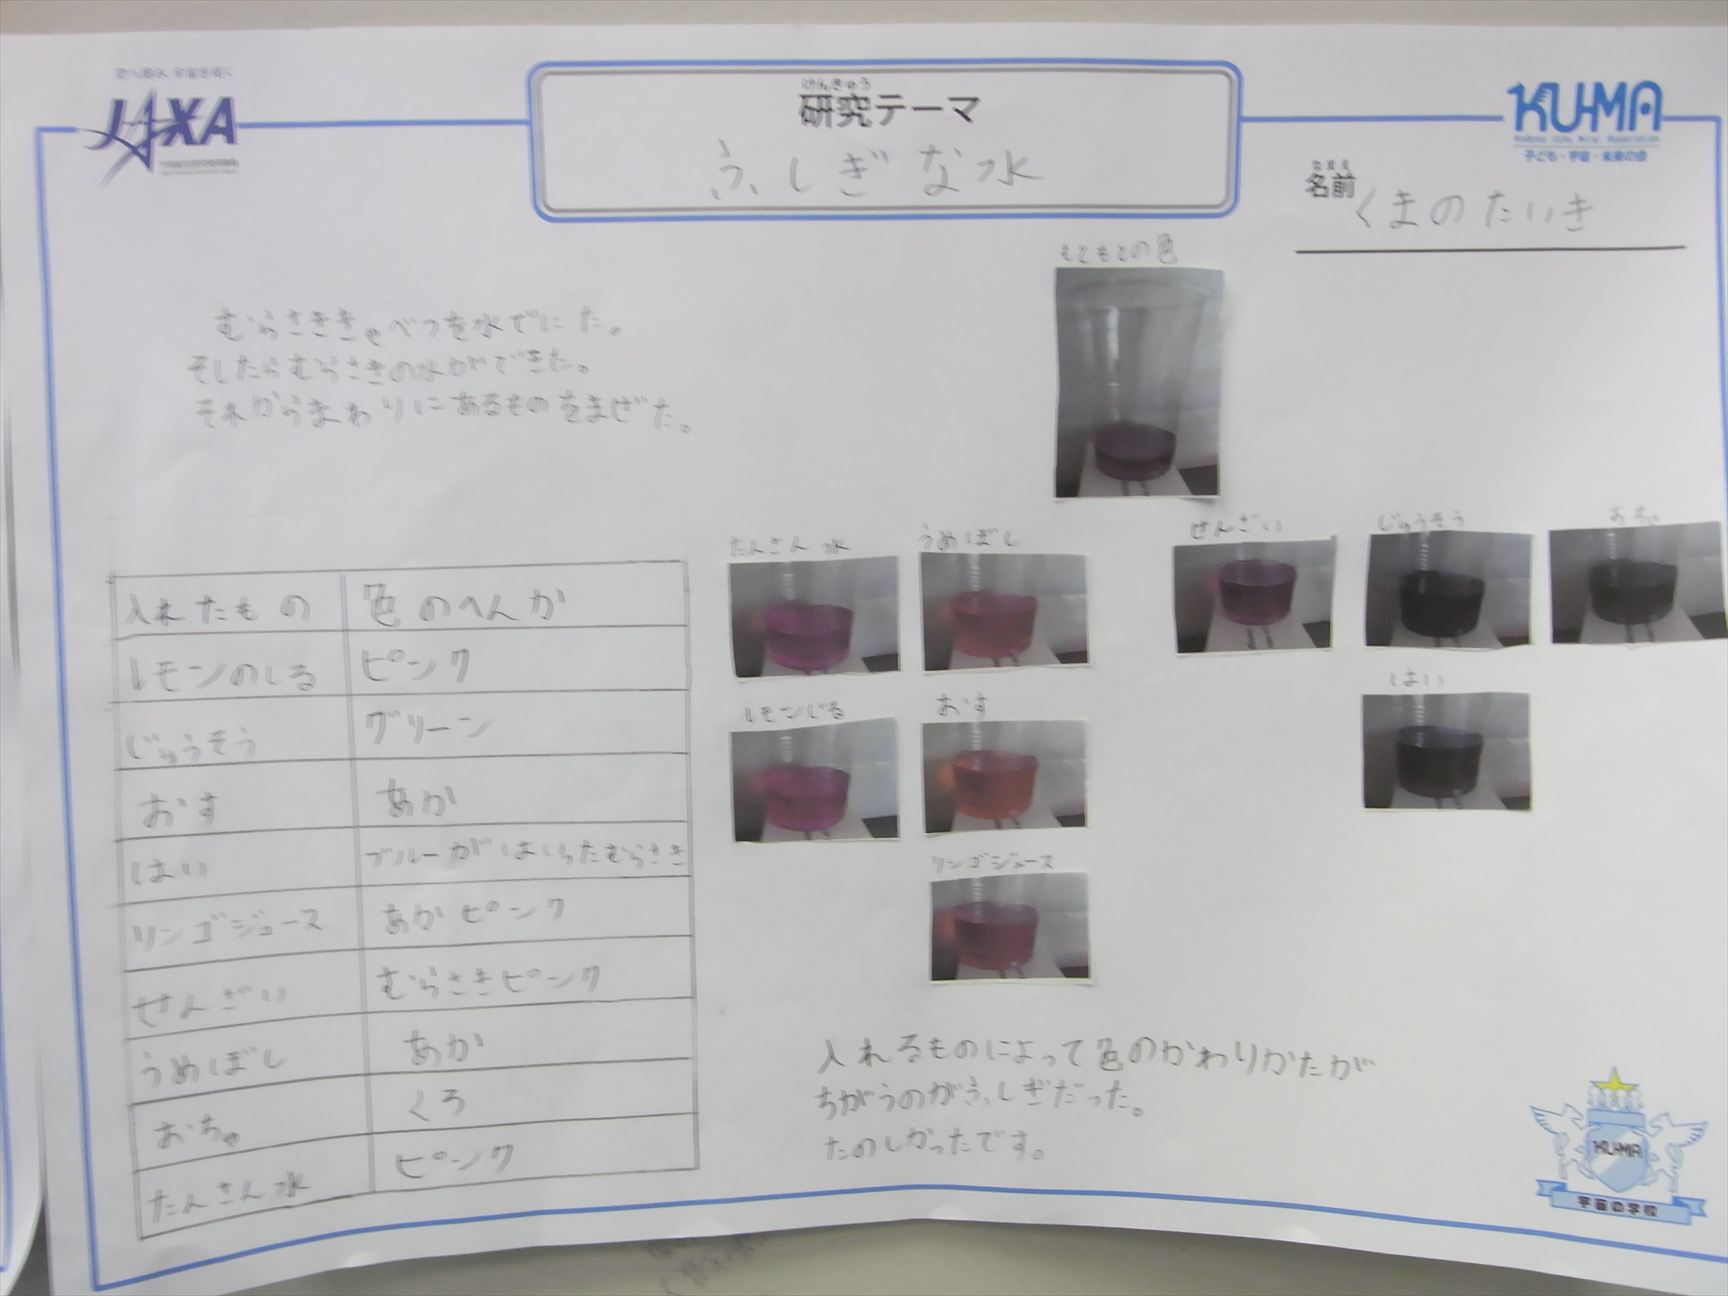 JAXA
けんきゅう
研究テーマ
ふしぎな水
KU-MA
子ども・宇宙・未来の会
なまえ
名前 くまのたいき
むらさききゃべつを水でにた。
そしたらむらさきの水ができた。
それからまわりにあるものをまぜた。
もともとの色
たんさん水 うめぼし せんざい じゅうそう おちゃ
レモンじる おす はい
リンゴジュース
入れたもの 色のへんか
レモンのしる ピンク
じゅうそう グリーン
おす あか
はい ブルーがはいったむらさき
リンゴジュース あかピンク
せんざい むらさきピンク
うめぼし あか
おちゃ くろ
たんさん水 ピンク
入れるものによって色のかわりかたが
ちがうのがふしぎだった。
たのしかったです。
KU-MA
宇宙の学校